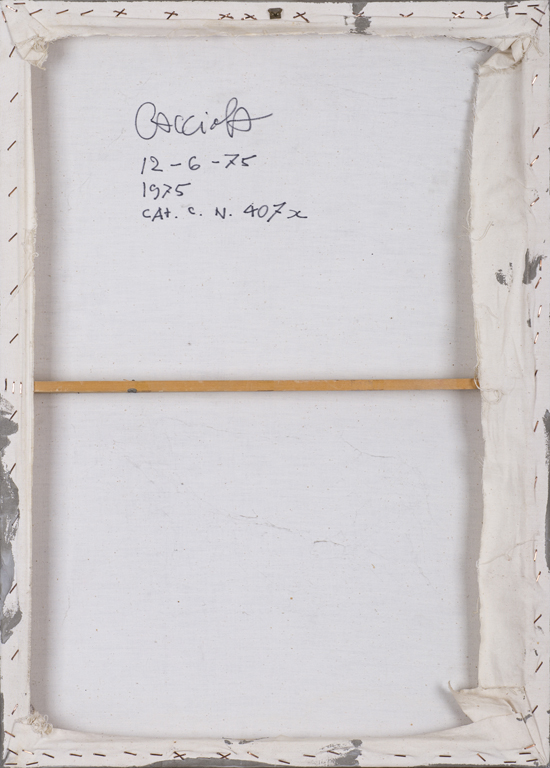 Cacciola
12-6-75
1975
CAt. C. N. 407x